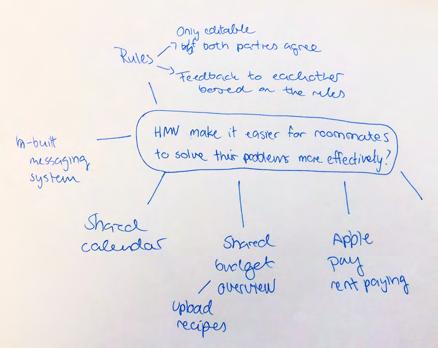 Only editable
if both parties agree
Rules
Feedback to eachother
based on the rules
HMW make it easier for roommates
to solve this problems more effectively?
In-built
messaging
system
Shared
calendar
Shared
budget
overview
Upload
recipes
Apple
pay
rent paying